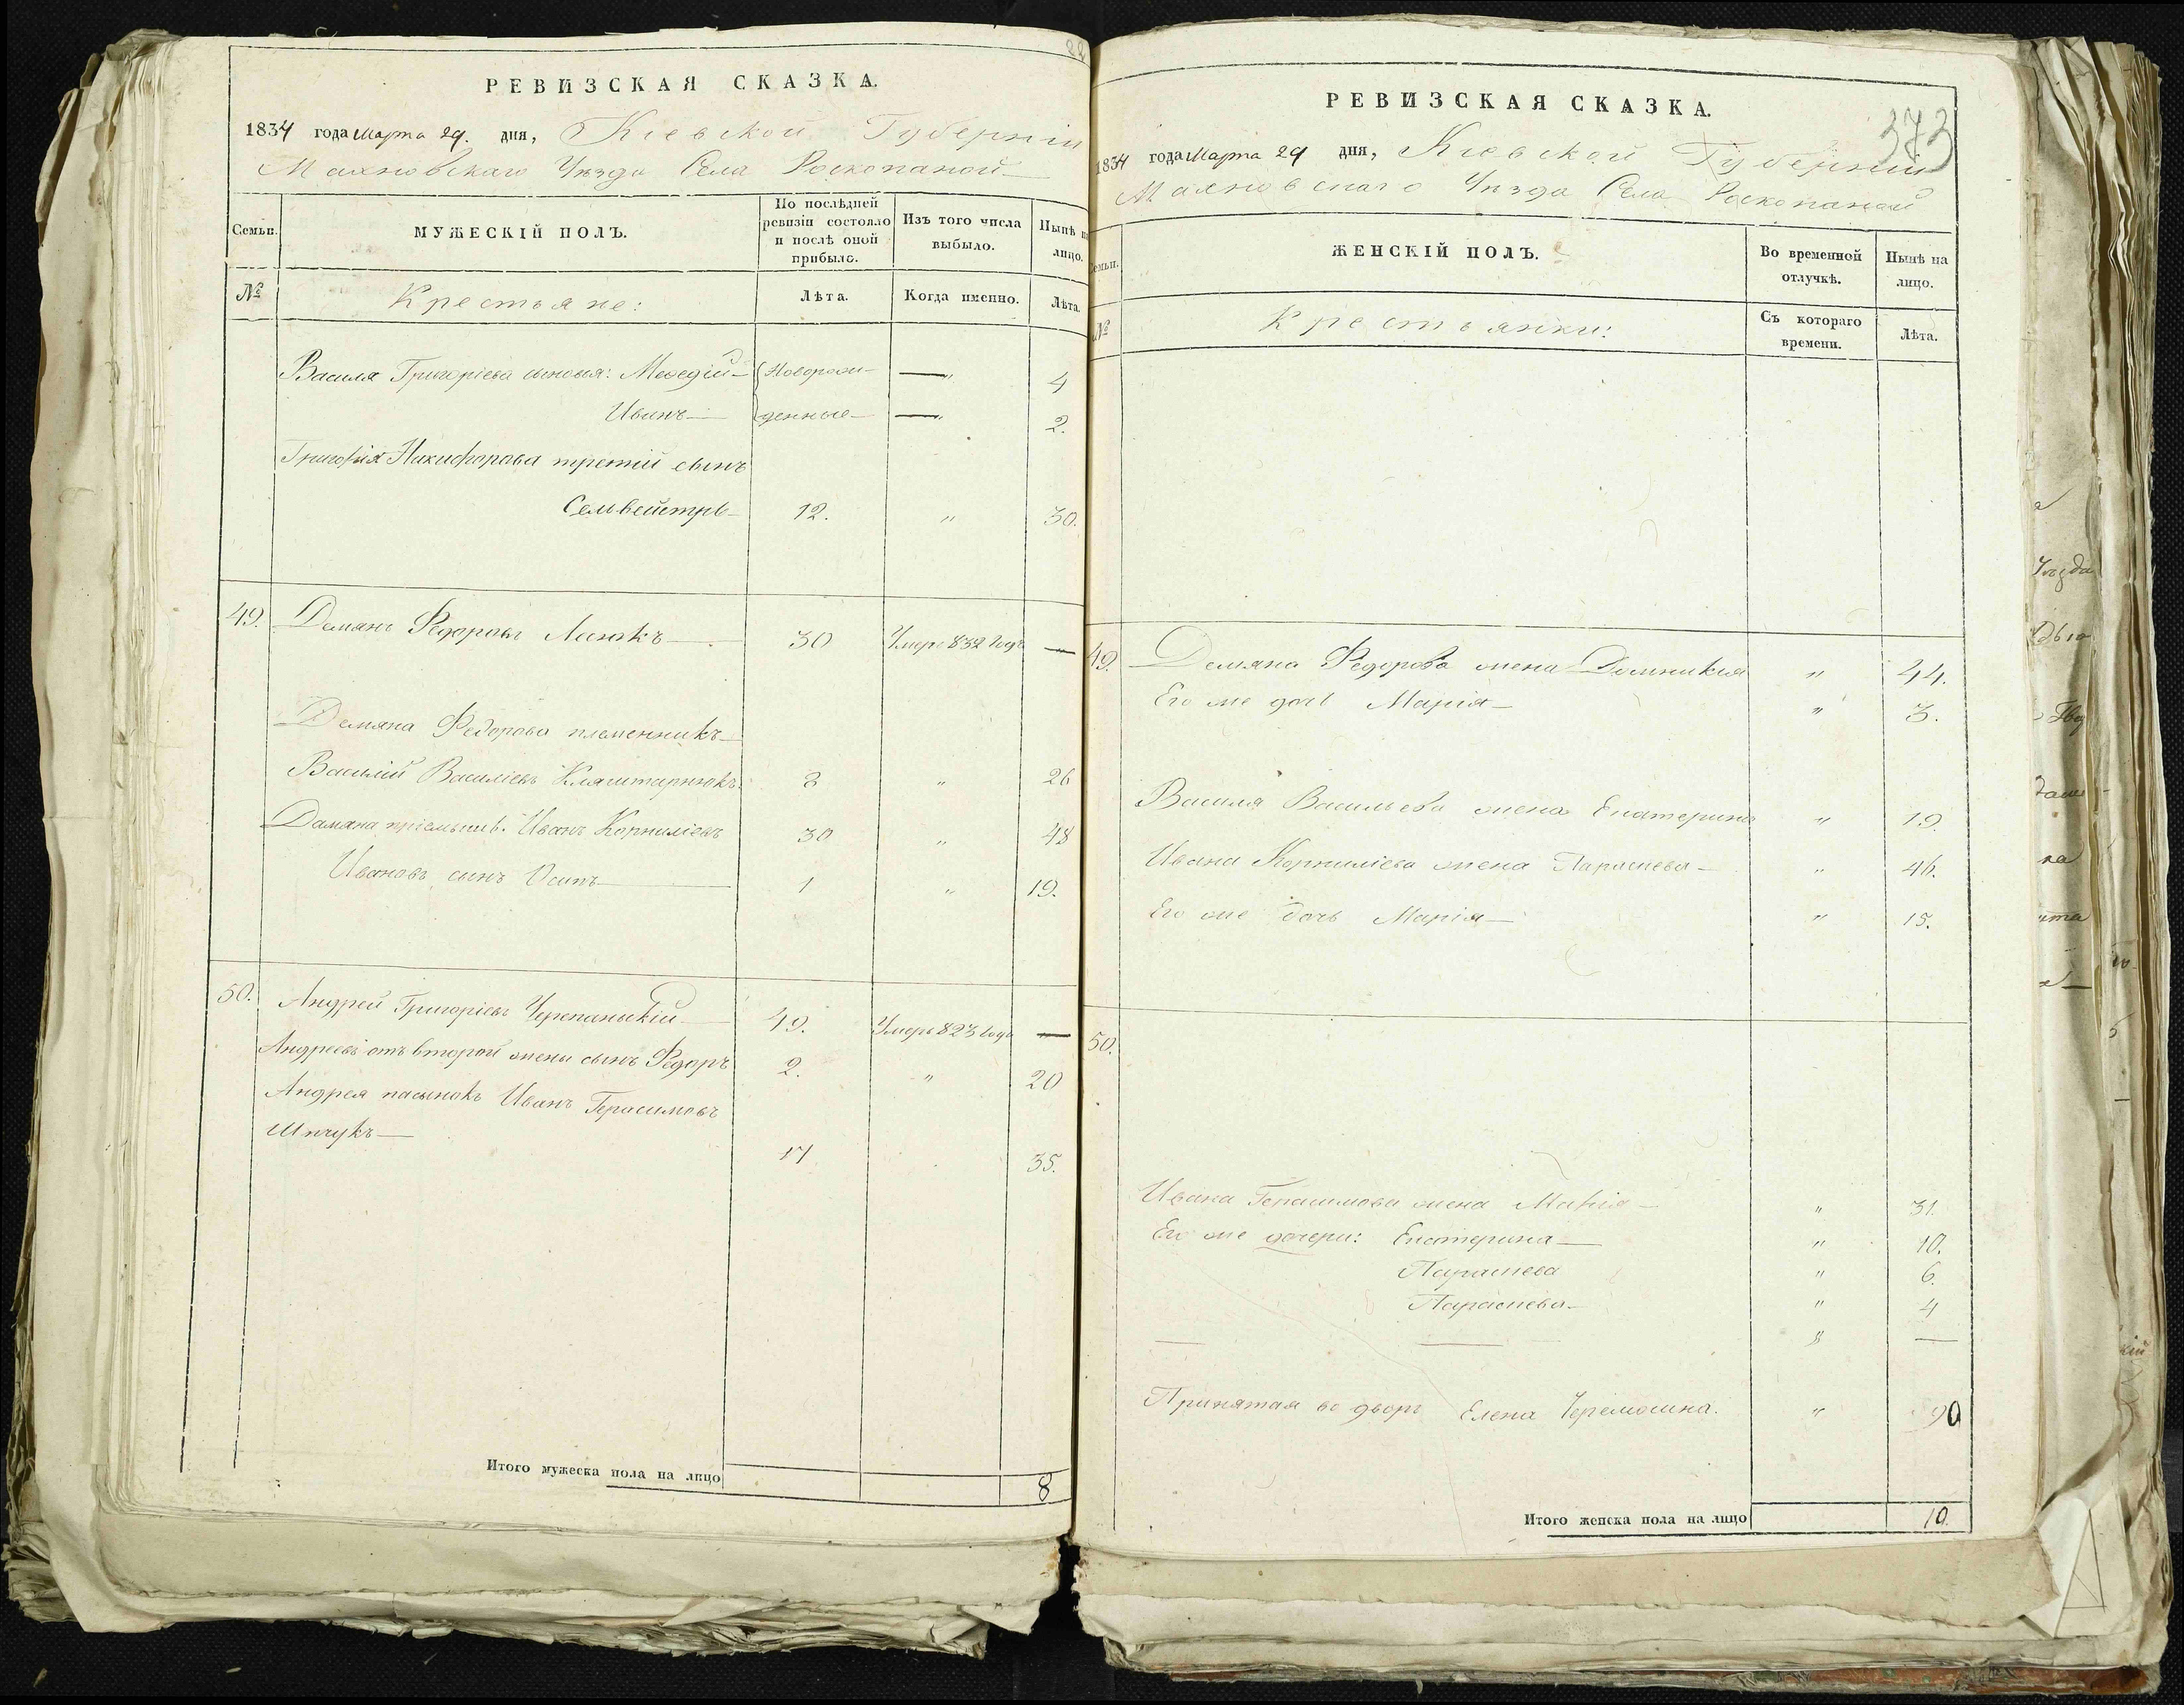 РЕВИЗСКАЯ СКАЗКА.
1834 года Марта 29. дня, Кіевской Губерніи
Махновскаго Уезда Села Роскопаной
Семьи.
МУЖЕСКІЙ ПОЛЪ.
По послѣдней
ревизіи состояло
и послѣ оной
прибыло.
Изъ того числа
выбыло.
Нынѣ
лицо.
№
Крестьяне:
Лѣта.
Когда именно.
Лѣта.
Василя Григоріева сыновья: Мефодій — Новорож- — " 4
Иванъ — денные — — " 2.
Григорія Никифорова третій сынъ
Сельвейстръ — 12. " 30.
49. Демянъ Федоровъ — 30 Умеръ 832 года —
Демяна Федорова племенникъ —
Василій Василіевъ Кляштарнюкъ. 8 " 26
Дамяна пріемышъ. Иванъ Корниліевъ 30 " 48
Ивановъ сынъ Осипъ — 1 " 19.
50. Андрей Григоріевъ 49. Умеръ 823 года —
Андреевъ отъ второй жены сынъ Федоръ 2. " 20
Андрея пасынокъ Иванъ Герасимовъ
17 35.
Итого мужеска пола на лицо 8
373
РЕВИЗСКАЯ СКАЗКА.
1834 года Марта 29 дня, Кіевской Губерніи
Махновскаго Уезда Села Роскопаной
Семьи.
ЖЕНСКІЙ ПОЛЪ.
Во временной
отлучкѣ.
Нынѣ на
лицо.
№
Крестьянки:
Съ котораго
времени.
Лѣта.
49. Демяна Федорова жена Домникия " 44.
Его же дочь Марія — " 3.
Василя Васильева жена Екатерина " 19.
Ивана Корниліева жена Параскева — " 46.
Его же дочь Марія — " 15.
50.
Ивана Герасимова жена Марія — " 31.
Его же дочери: Екатерина — " 10.
Параскева " 6.
Параскева — " 4
— — " —
Принятая во дворъ Елена " 90
Итого женска пола на лицо 10.